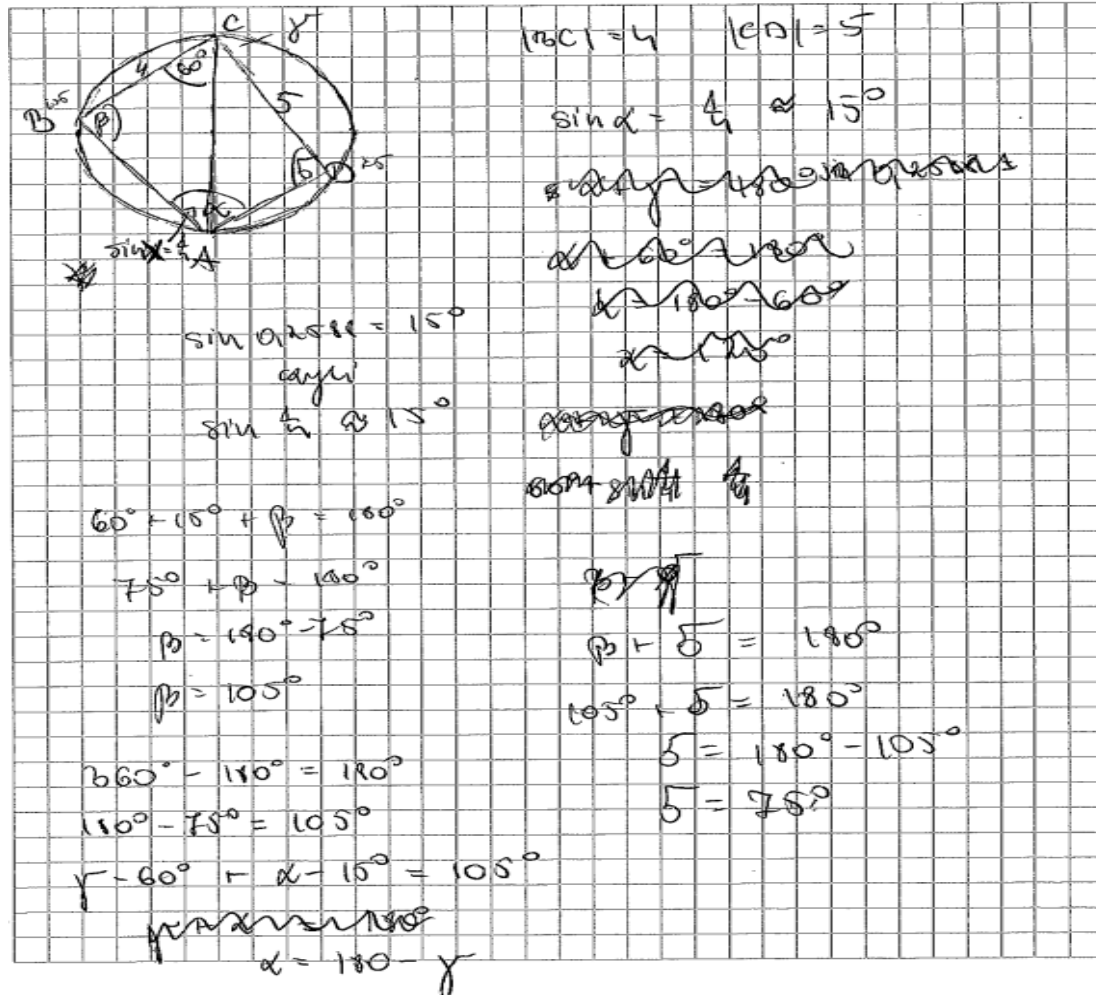 C γ
4 60°
5
B β
δ D
α
sin x = 1/4 A
|BC| = 4 |CD| = 5
sin α = 1/4 ≈ 15°
α + 60° = 180
α = 180° - 60°
sin 0,2588 = 15°
czyli
sin 1/4 ≈ 15°
60° + 15° + β = 180°
75° + β = 180°
β = 180° - 75°
β = 105°
360° - 180° = 180°
180° - 75° = 105°
γ - 60° + α - 15° = 105°
α = 180 - γ
β + δ = 180°
105° + δ = 180°
δ = 180° - 105°
δ = 75°